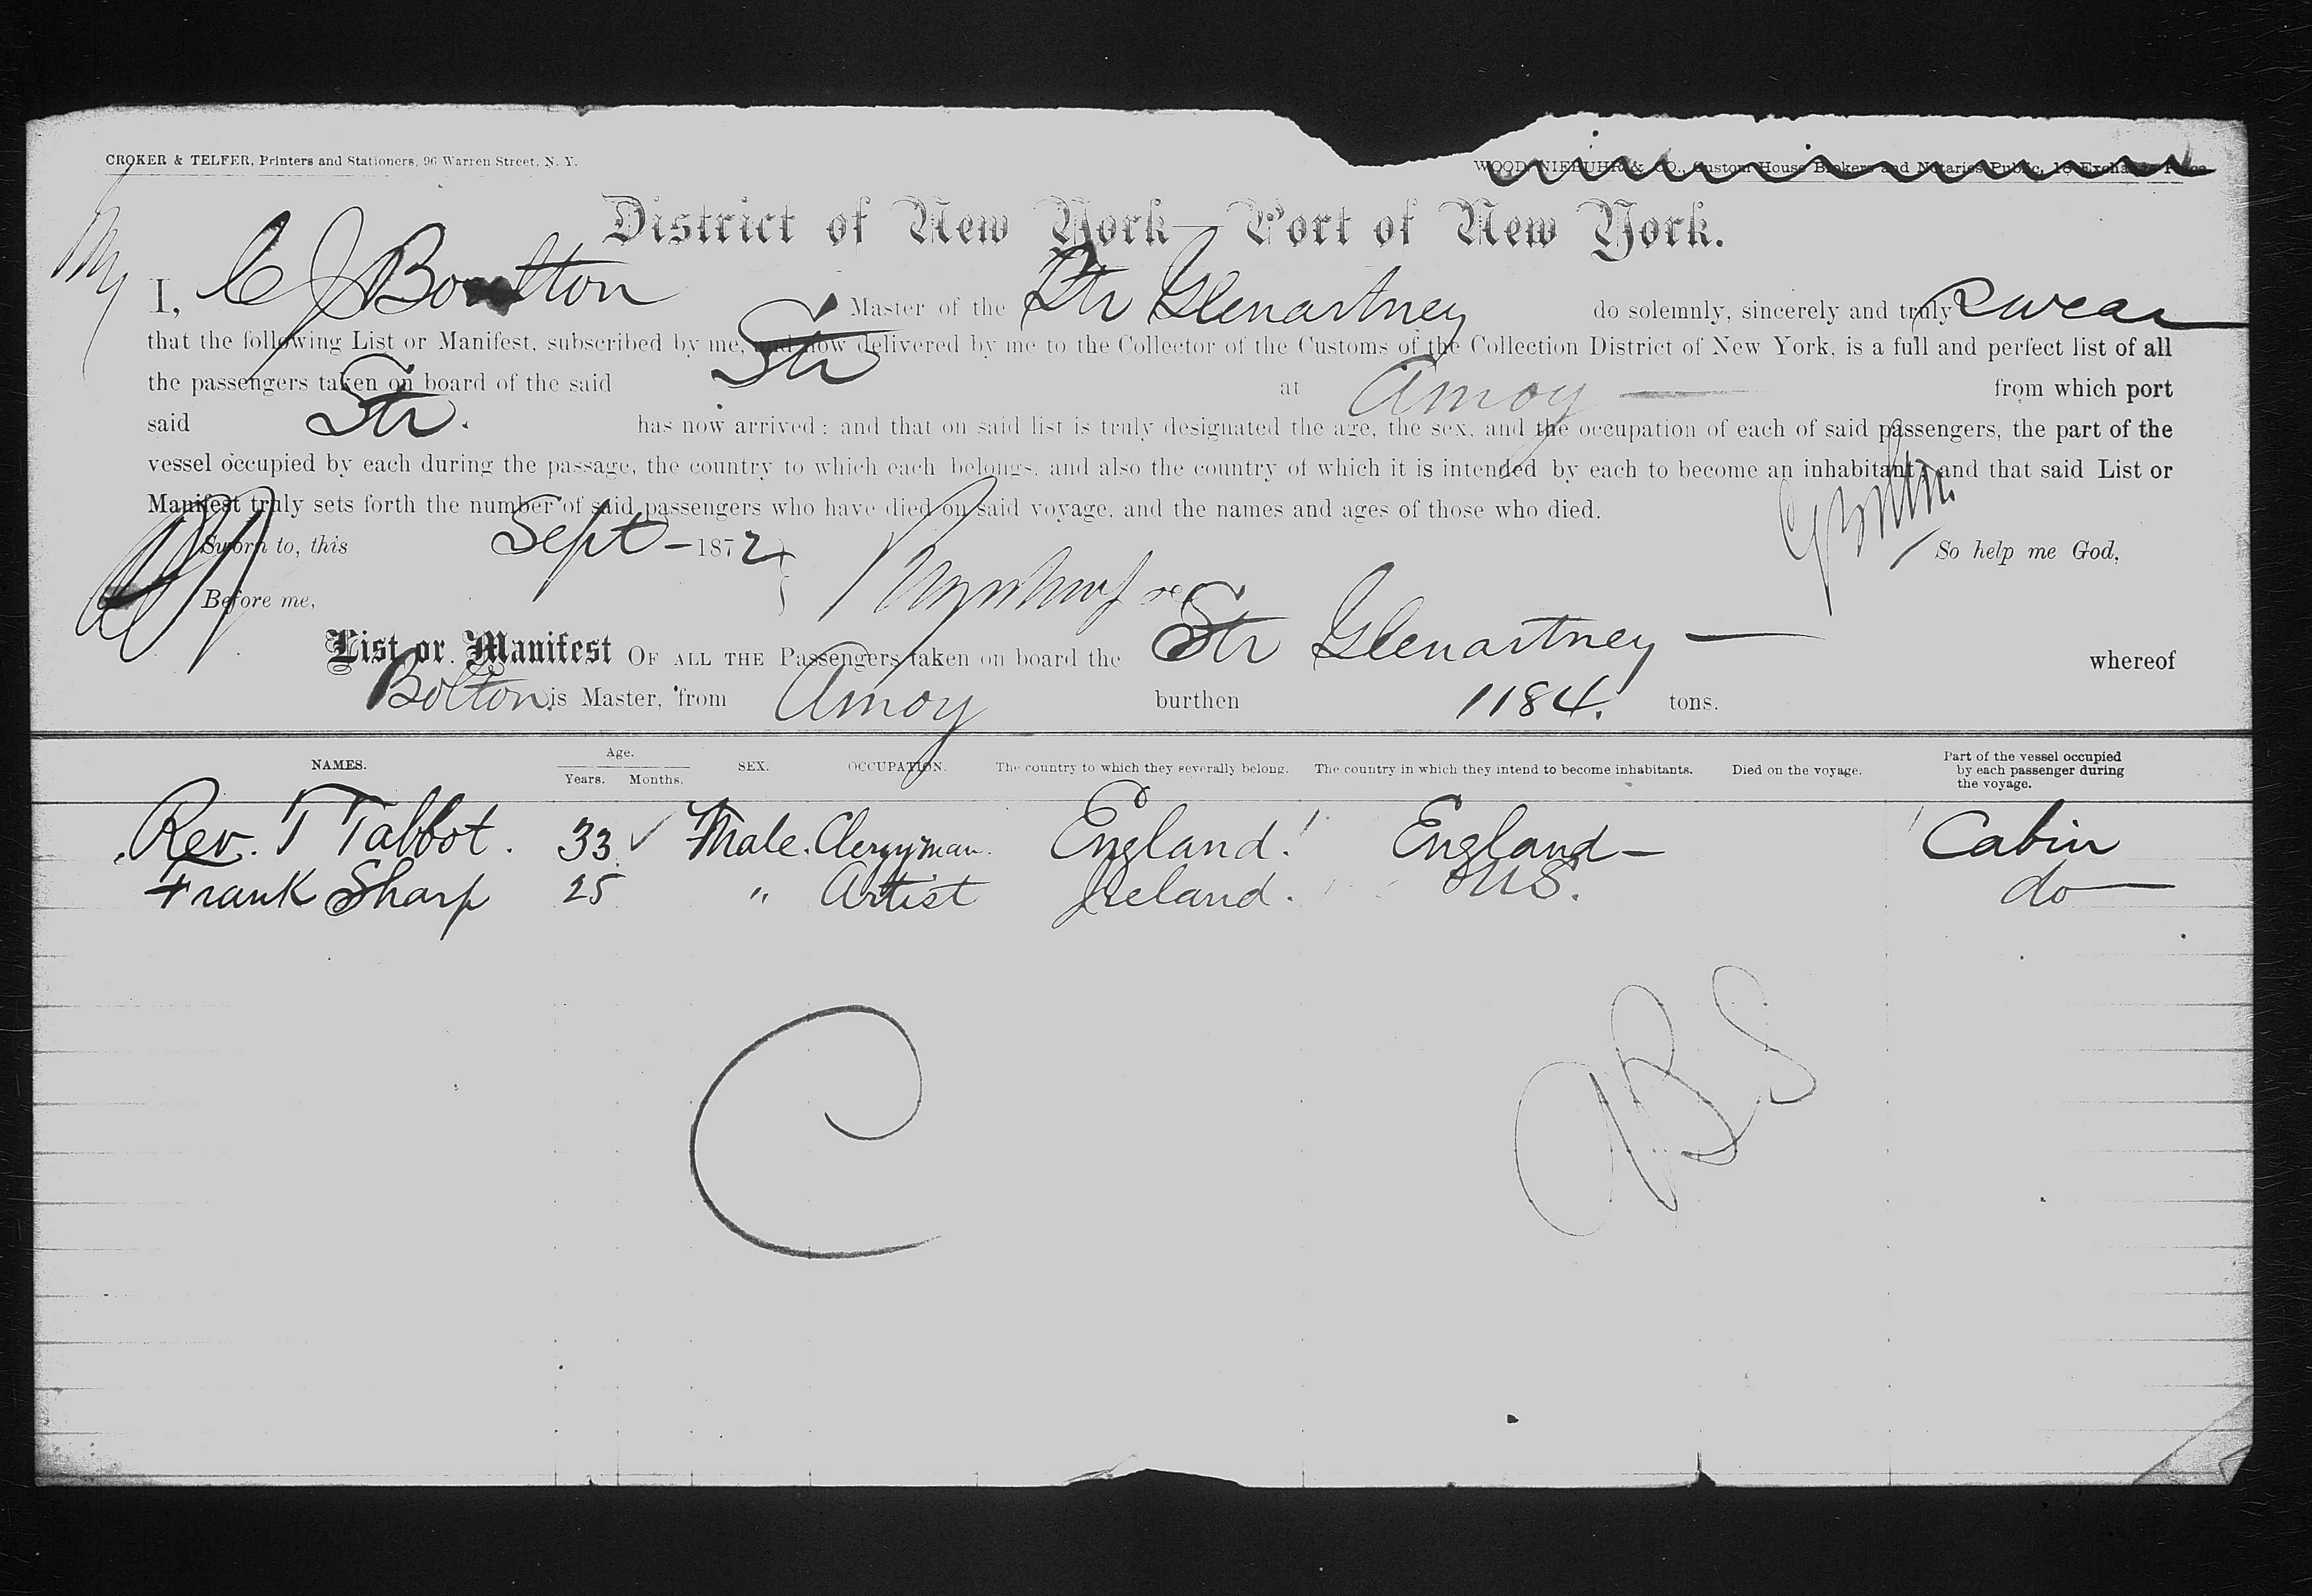 CROKER & TELFER, Printers and Stationers, 96 Warren Street, N. Y.
WOOD, NIEBUHR & CO., Custom House Brokers and Notaries Public, 18 Exchange Place
District of New York—Port of New York.
I, C J Bolton Master of the Str Glenartney do solemnly, sincerely and truly swear
that the following List or Manifest, subscribed by me, and now delivered by me to the Collector of the Customs of the Collection District of New York, is a full and perfect list of all
the passengers taken on board of the said Str at Amoy — from which port
said Str. has now arrived; and that on said list is truly designated the age, the sex, and the occupation of each of said passengers, the part of the
vessel occupied by each during the passage, the country to which each belongs, and also the country of which it is intended by each to become an inhabitant; and that said List or
Manifest truly sets forth the number of said passengers who have died on said voyage, and the names and ages of those who died.
Sworn to, this Sept — 1872 So help me God,
Before me,
List or Manifest OF ALL THE Passengers taken on board the Str Glenartney — whereof
Bolton is Master, from Amoy burthen 1184. tons.
NAMES. Age. Years. Months. SEX. OCCUPATION. The country to which they severally belong. The country in which they intend to become inhabitants. Died on the voyage. Part of the vessel occupied by each passenger during the voyage.
Rev. T Talbot. 33 ✓ Male. Clergyman. England. England — Cabin
Frank Sharp 25 " Artist Ireland. U.S. do —
C